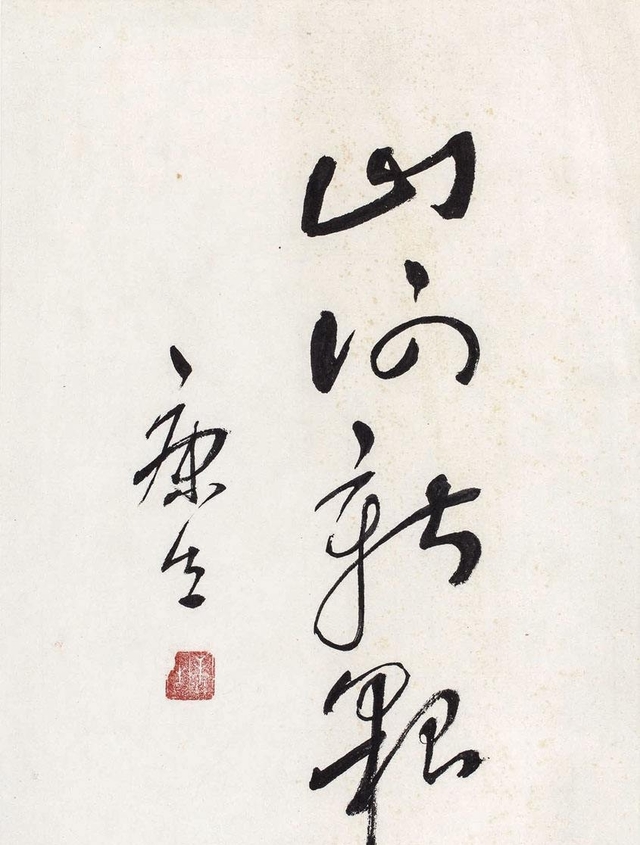 山河新
康生